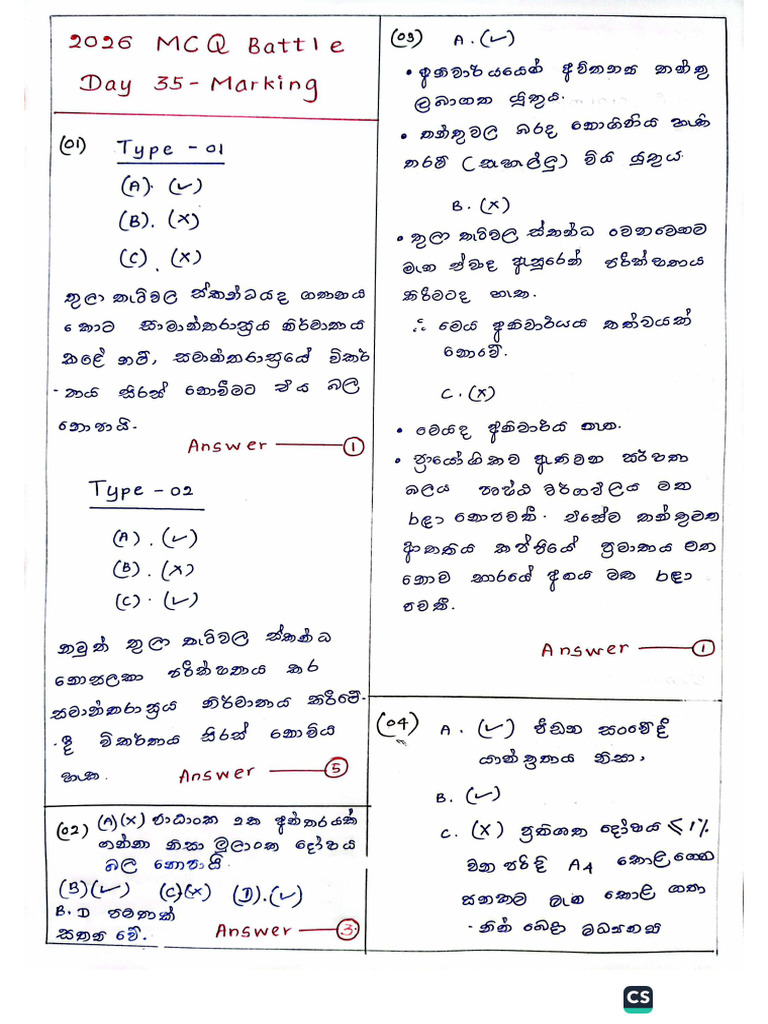 2026 MCQ Battle
Day 35 - Marking
(01) Type - 01
(A). (✓)
(B). (x)
(C). (x)
තුලා තැටිවල ස්කන්ධයද ගණනය
කොට සාමාන්තරාස්‍රය නිර්මාණය
කළේ නම්, සමාන්තරාස්‍රයේ විකර්
-ණය සිරස් නොවීමට එය බල
නොපායි.
Answer —— ①
Type - 02
(A). (✓)
(B). (x)
(C). (✓)
නමුත් තුලා තැටිවල ස්කන්ධ
නොසලකා පරීක්ෂණය කර
සමාන්තරාස්‍රය නිර්මාණය කිරීමේ-
-දී විකර්ණය සිරස් නොවිය
හැක. Answer —— ⑤
(02) (A)(x) පාඨාංක 2ක අන්තරයක්
ගන්නා නිසා මූලාංක දෝෂය
බල නොපායි.
(B)(✓) (C)(x) (D).(✓)
B. D පමණක්
සත්‍ය වේ. Answer —— ③
(03) A. (✓)
• අනිවාර්යයෙන් අවිතන්‍ය තන්තු
ලබාගත යුතුය.
• තන්තුවල බරද නොගිණිය හැකි
තරම් (සැහැල්ලු) විය යුතුය.
B. (x)
• තුලා තැටිවල ස්කන්ධ වෙනවෙනම
මැන ඒවාද ඇසුරෙන් පරීක්ෂණය
කිරීමටද හැක.
∴ මෙය අනිවාර්යය තත්වයක්
නොවේ.
C. (x)
• මෙයද අනිවාර්ය නැත.
• ප්‍රායෝගිකව ඇතිවන ඝර්ෂණ
බලය පෘෂ්ඨ වර්ගඵලය මත
රඳා නොපවතී. එසේම තන්තුමත
ආතතිය කප්පියේ ප්‍රමාණය මත
නොව භාරයේ අගය මත රඳා
පවතී.
Answer —— ①
(04) A. (✓) පීඩන සංවේදී
යාන්ත්‍රණය නිසා,
B. (✓)
C. (x) ප්‍රතිශත දෝෂය ≤ 1%
වන පරිදි A4 කොළ ගෙන
ඝනකම මැන කොළ ගණ
-නින් බෙදා මධ්‍යන්‍ය
CS